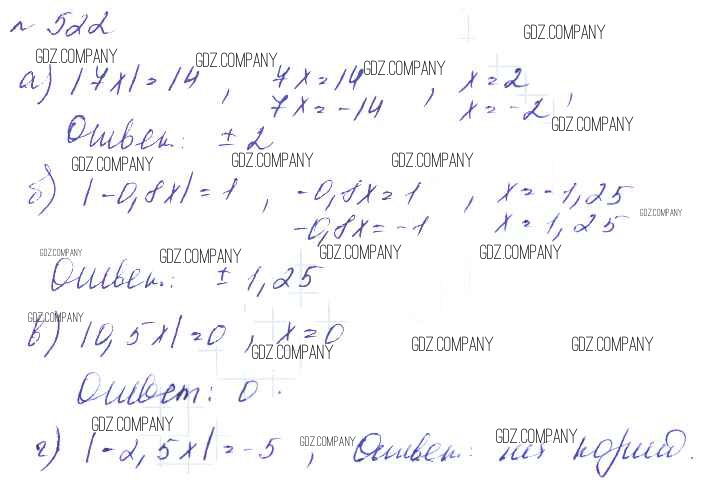 № 522
GDZ.COMPANY
GDZ.COMPANY GDZ.COMPANY GDZ.COMPANY
а) |7x| = 14, 7x = 14, x = 2
7x = -14 x = -2,
Ответ: ± 2
GDZ.COMPANY
GDZ.COMPANY GDZ.COMPANY GDZ.COMPANY
б) |-0,8x| = 1, -0,8x = 1, x = -1,25
-0,8x = -1 x = 1,25
GDZ.COMPANY
GDZ.COMPANY GDZ.COMPANY GDZ.COMPANY GDZ.COMPANY
Ответ: ± 1,25
GDZ.COMPANY
в) |0,5x| = 0, x = 0
GDZ.COMPANY GDZ.COMPANY GDZ.COMPANY
Ответ: 0.
GDZ.COMPANY
г) |-2,5x| = -5, Ответ: нет корней.
GDZ.COMPANY GDZ.COMPANY